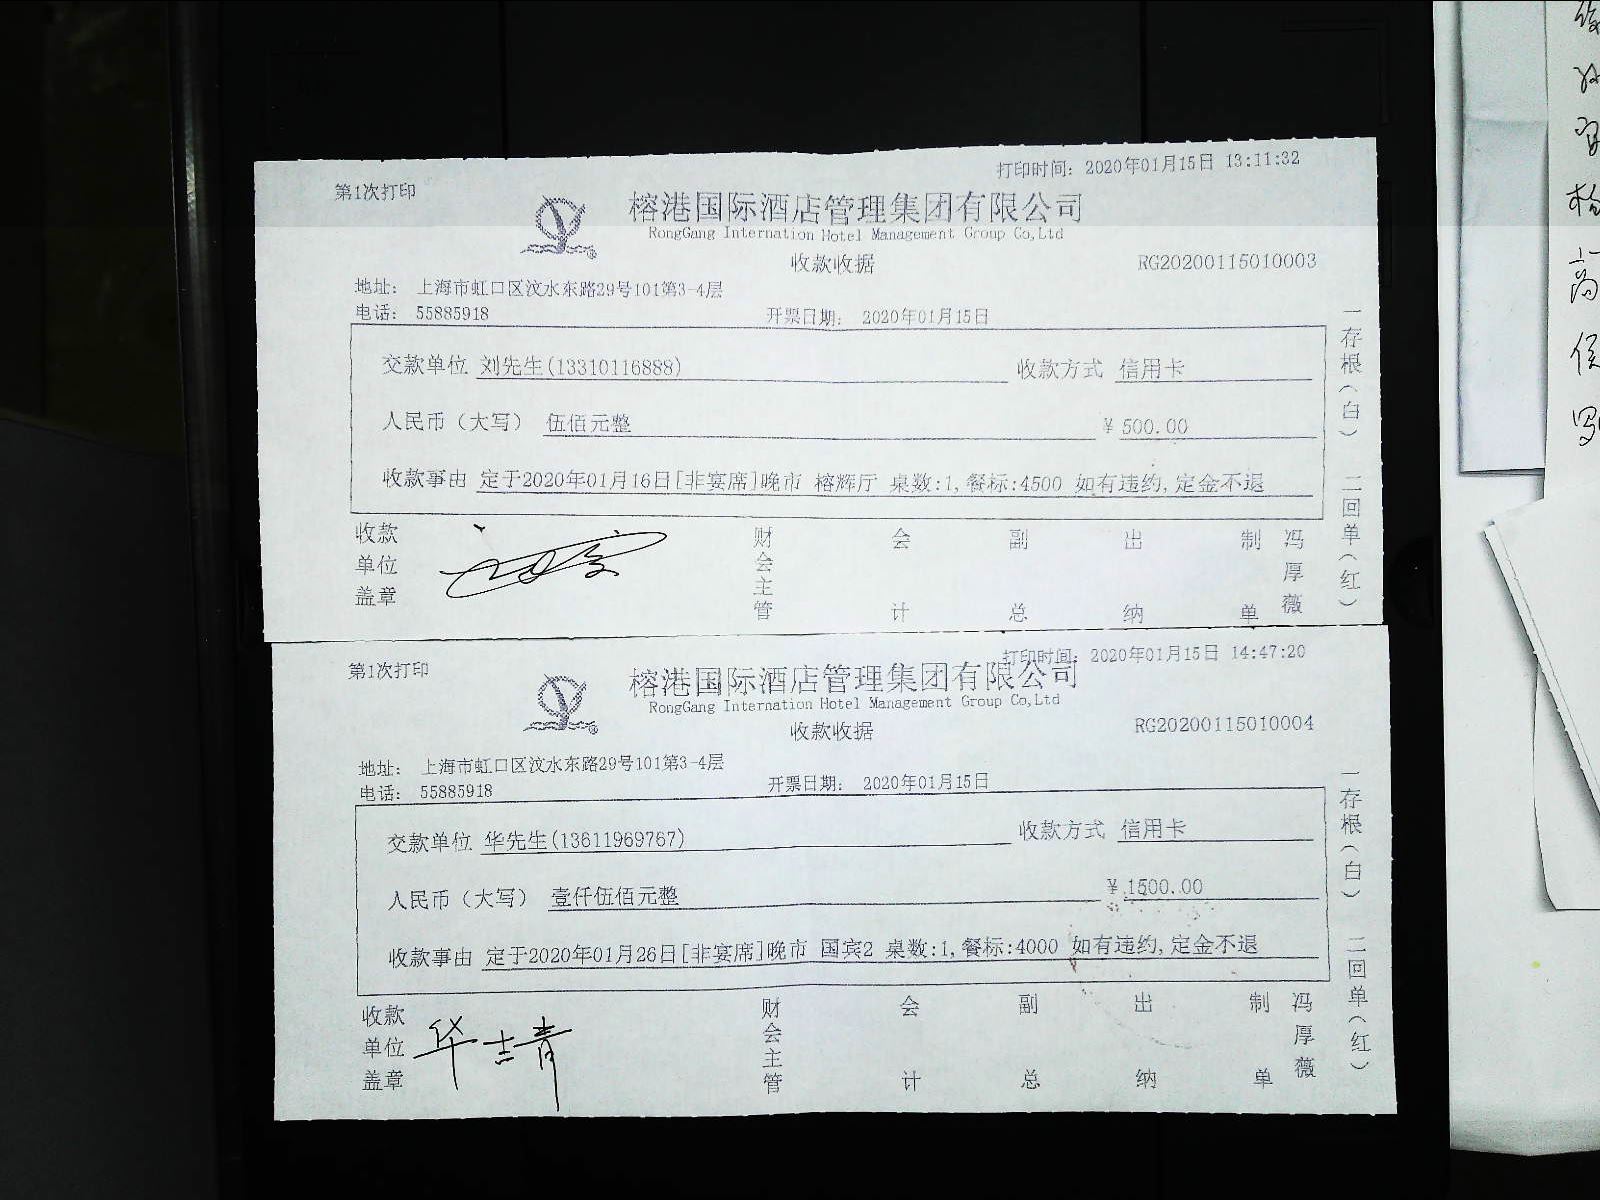 第1次打印
打印时间: 2020年01月15日 13:11:32
榕港国际酒店管理集团有限公司
RongGang Internation Hotel Management Group Co,Ltd
收款收据
RG20200115010003
地址: 上海市虹口区汶水东路29号101第3-4层
电话: 55885918
开票日期: 2020年01月15日
交款单位 刘先生(13310116888) 收款方式 信用卡
人民币（大写） 伍佰元整 ¥ 500.00
收款事由 定于2020年01月16日[非宴席]晚市 榕辉厅 桌数:1,餐标:4500 如有违约,定金不退
收款单位盖章 财会主管 会计 副总 出纳 制单 冯厚薇
一存根(白) 二回单(红)
第1次打印
打印时间: 2020年01月15日 14:47:20
榕港国际酒店管理集团有限公司
RongGang Internation Hotel Management Group Co,Ltd
收款收据
RG20200115010004
地址: 上海市虹口区汶水东路29号101第3-4层
电话: 55885918
开票日期: 2020年01月15日
交款单位 华先生(13611969767) 收款方式 信用卡
人民币（大写） 壹仟伍佰元整 ¥ 1500.00
收款事由 定于2020年01月26日[非宴席]晚市 国宾2 桌数:1,餐标:4000 如有违约,定金不退
收款单位盖章 华吉青 财会主管 会计 副总 出纳 制单 冯厚薇
一存根(白) 二回单(红)